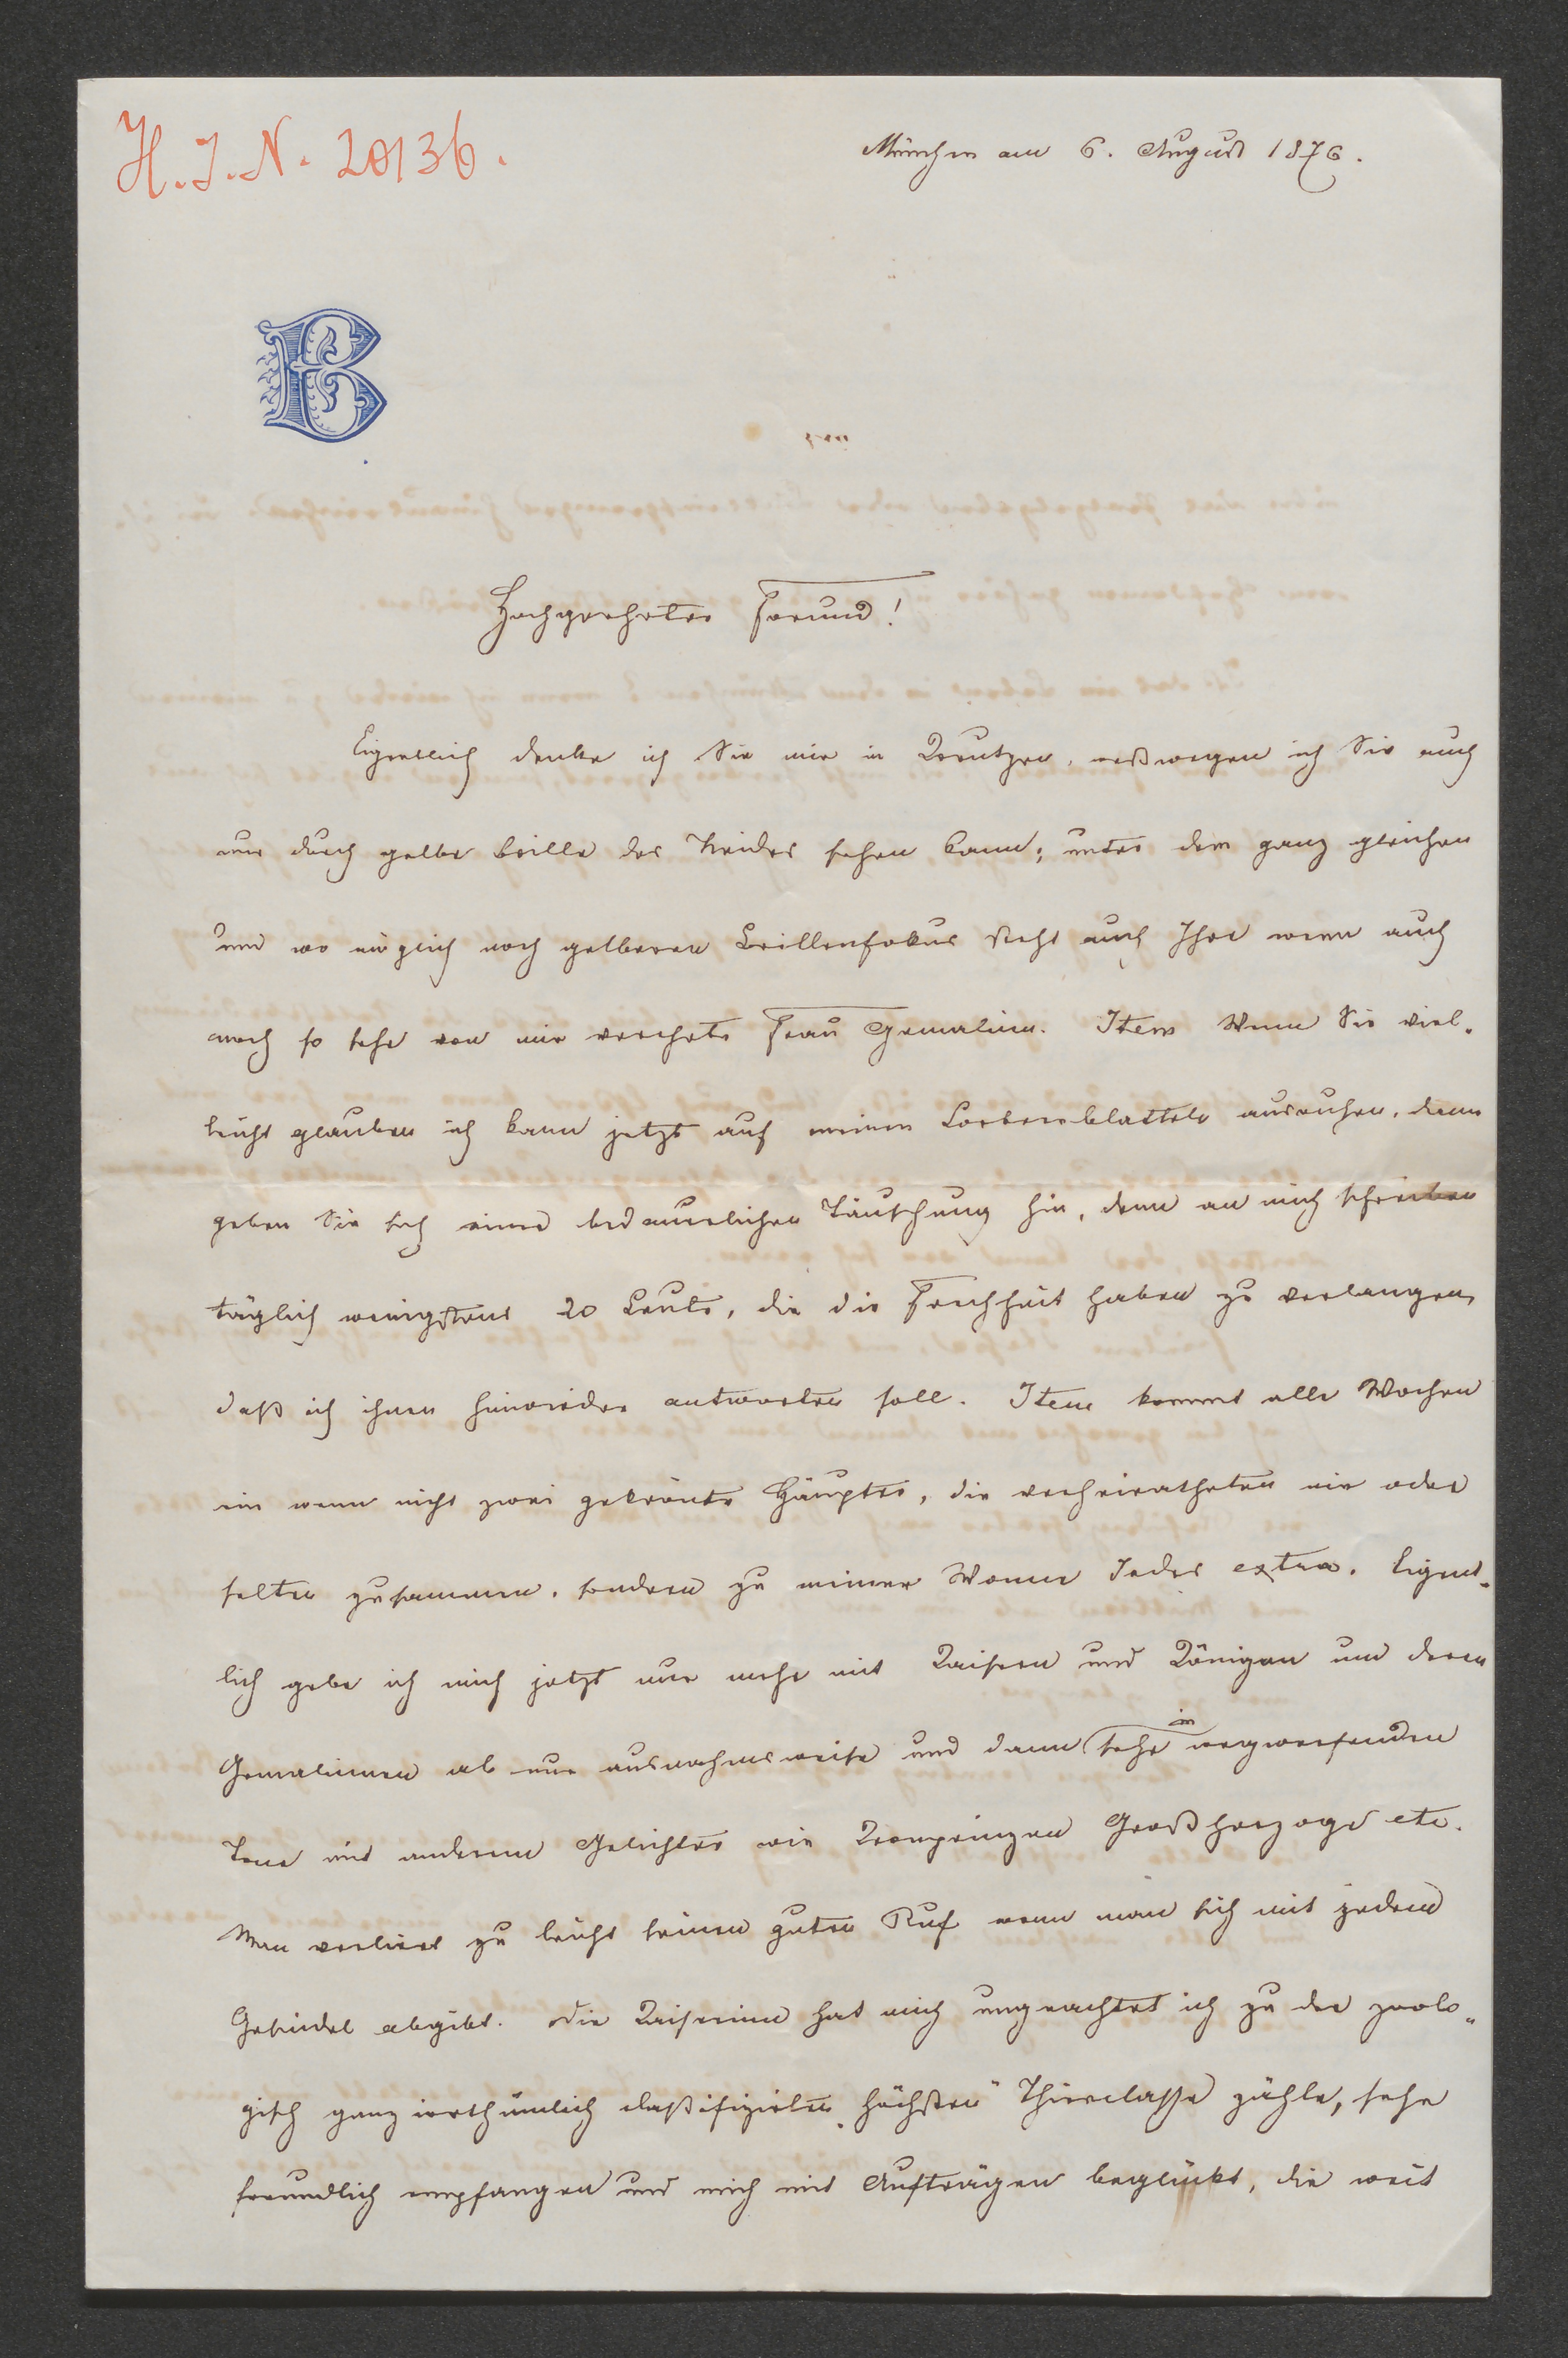 H.I.N. 20136.
München am 6. August 1876.
B
Hochgeehrter Freund!
Eigentlich denke ich Sie mir in Kreutzen, weßwegen ich Sie auch
nur durch gelbe Brille des Neides sehen kann; unter dem ganz gleichen
und wo möglich noch gelberen Brillenfokus steht auch Ihre wenn auch
noch so sehr von mir verehrte Frau Gemalinn. Item Wenn Sie viel-
leicht glauben ich kann jetzt auf meinen Lorbeerblatteln ausruhen, dann
geben Sie sich einer bedauerlichen Täuschung hin, denn an mich schreiben
täglich wenigstens 20 Leute, die die Frechheit haben zu verlangen,
daß ich ihnen hinwieder antworten soll. Item kommt alle Wochen
ein wenn nicht zwei gekrönte Häupter, die verheiratheten nie oder
selten zusammen, sondern zu meiner Wonne Jedes extra. Eigent-
lich gebe ich mich jetzt nur mehr mit Kaisern und Königen und deren
Gemalinnen ab nur ausnahmsweise und dann in sehr wegwerfenden
Tone mit anderem Gelichter wie Kronprinzen Großherzoge etc.
Man verliert zu leicht seinen guten Ruf wenn man sich mit jedem
Gesindel abgibt. Die Kaiserinn hat mich ungeachtet ich zu der zoolo-
gisch ganz irrthümlich classifizirten „höchsten“ Thierclasse zähle, sehr
freundlich empfangen und mich mit Aufträgen beglückt, die weit